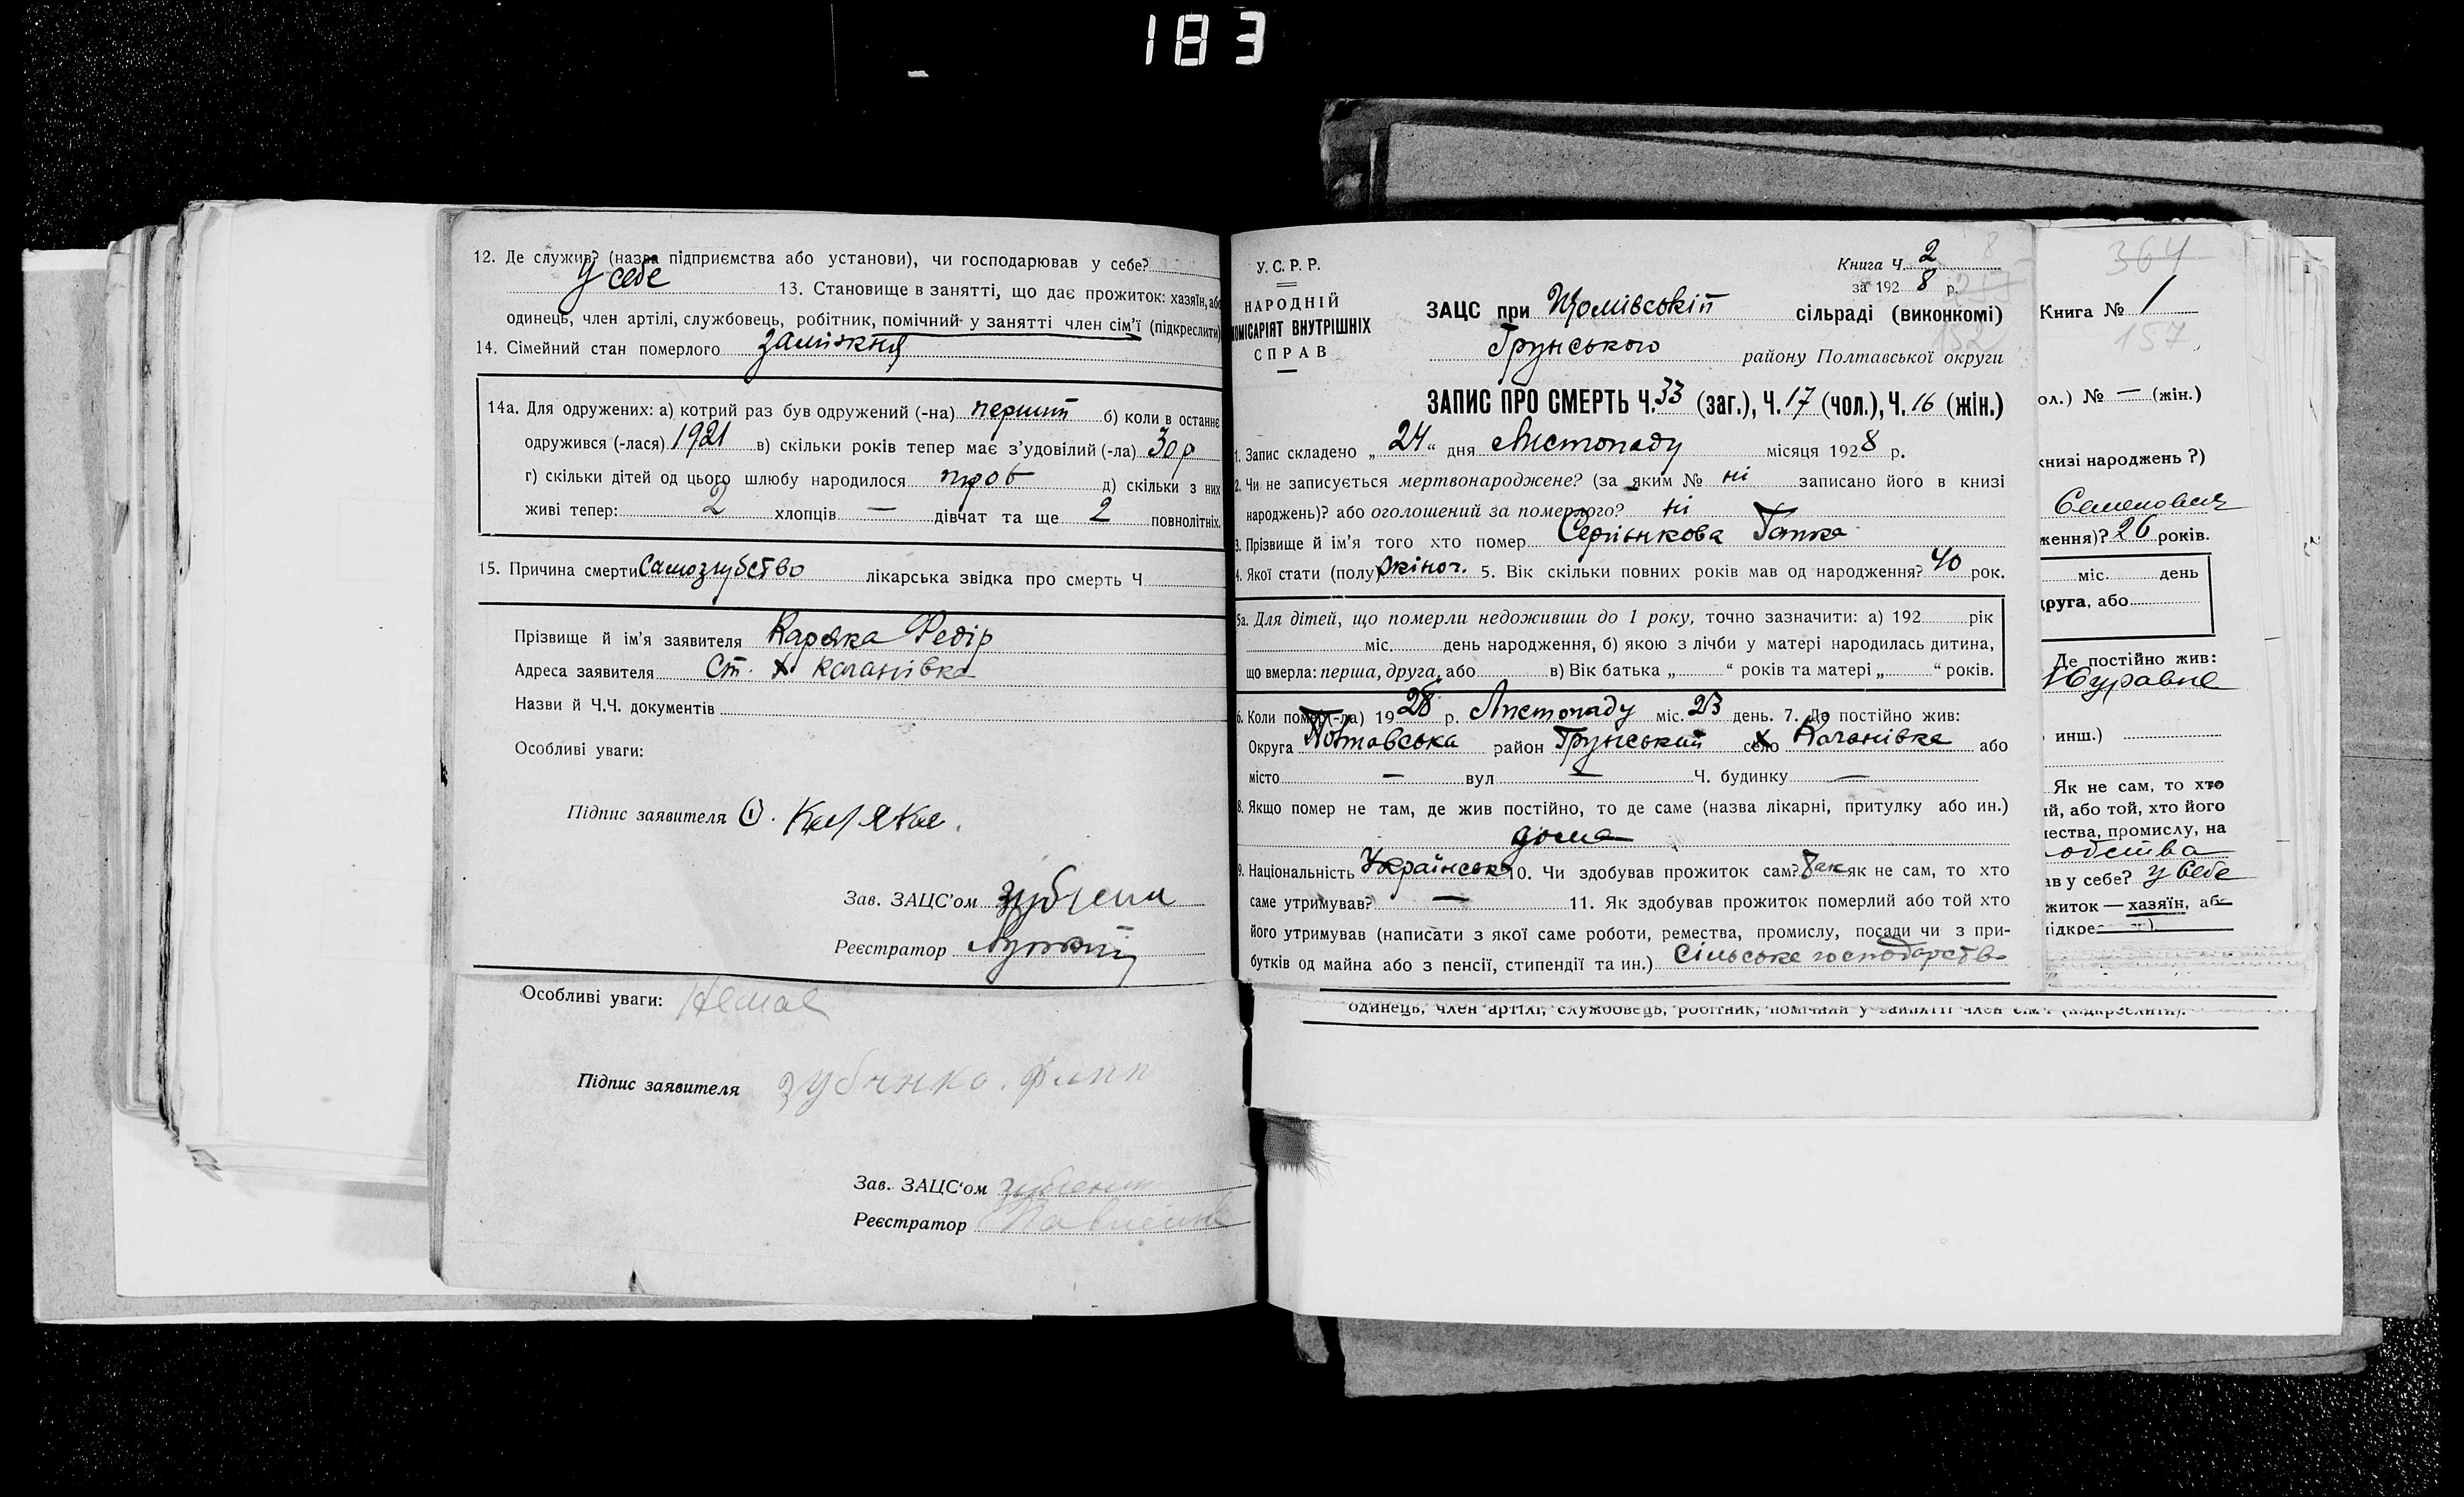 183
12. Де служив? (назва підприємства або установи), чи господарював у себе?
У себе 13. Становище в занятті, що дає прожиток: хазяїн, або
одинець, член артілі, службовець, робітник, помічний у занятті член сім'ї (підкреслити)
14. Сімейний стан померлого заміжня
14а. Для одружених: а) котрий раз був одружений (-на) б) коли в останнє
одружився (-лася) 1921 в) скільки років тепер має з'удовілий (-ла) 30 р
г) скільки дітей од цього шлюбу народилося д) скільки з них
живі тепер: 2 хлопців — дівчат та ще 2 повнолітніх.
15. Причина смерти Самозгубство лікарська звідка про смерть Ч.
Прізвище й ім'я заявителя Каряка Федір
Адреса заявителя Ст. х Качанівка
Назви й Ч.Ч. документів
Особливі уваги:
Підпис заявителя Ф. Каряка.
Зав. ЗАЦС'ом
Реєстратор
Особливі уваги: Немає
Підпис заявителя
Зав. ЗАЦС'ом
Реєстратор
У. С. Р. Р.
НАРОДНІЙ
КОМІСАРІЯТ ВНУТРІШНІХ
СПРАВ
Книга Ч. 2
за 192 8 р.
ЗАЦС при сільраді (виконкомі)
Грунського району Полтавської округи
ЗАПИС ПРО СМЕРТЬ Ч. 33 (заг.), Ч. 17 (чол.), Ч. 16 (жін.)
1. Запис складено „ 24 “ дня Листопаду місяця 1928 р.
2. Чи не записується мертвонароджене? (за яким № ні записано його в книзі
народжень)? або оголошений за померлого? ні
3. Прізвище й ім'я того хто помер
4. Якої статі (полу) жіноч. 5. Вік скільки повних років мав од народження? 40 рок.
5а. Для дітей, що померли недоживши до 1 року, точно зазначити: а) 192 рік
міс. день народження, б) якою з лічби у матері народилась дитина,
що вмерла: перша, друга, або в) Вік батька „ “ років та матері „ “ років.
6. Коли помер (-ла) 1928 р. Листопаду міс. 23 день. 7. Де постійно жив:
Округа Полтавська район Грунський село х Качанівка або
місто — вул — Ч. будинку —
8. Якщо помер не там, де жив постійно, то де саме (назва лікарні, притулку або ин.)
дома
9. Національність Українська 10. Чи здобував прожиток сам? Так як не сам, то хто
саме утримував? — 11. Як здобував прожиток померлий або той хто
його утримував (написати з якої саме роботи, ремества, промислу, посади чи з при-
бутків од майна або з пенсії, стипендії та ин.) Сільське господарство
одинець, член артілі, службовець, робітник, помічний у занятті член сім'ї (підкреслити).
364
Книга № 1
157
ол.) № — (жін.)
книзі народжень ?)
ження)? 26 років.
міс. день
друга, або
Де постійно жив:
инш.)
Як не сам, то хто
ий, або той, хто його
мества, промислу, на
ав у себе? у себе
житок — хазяїн, або